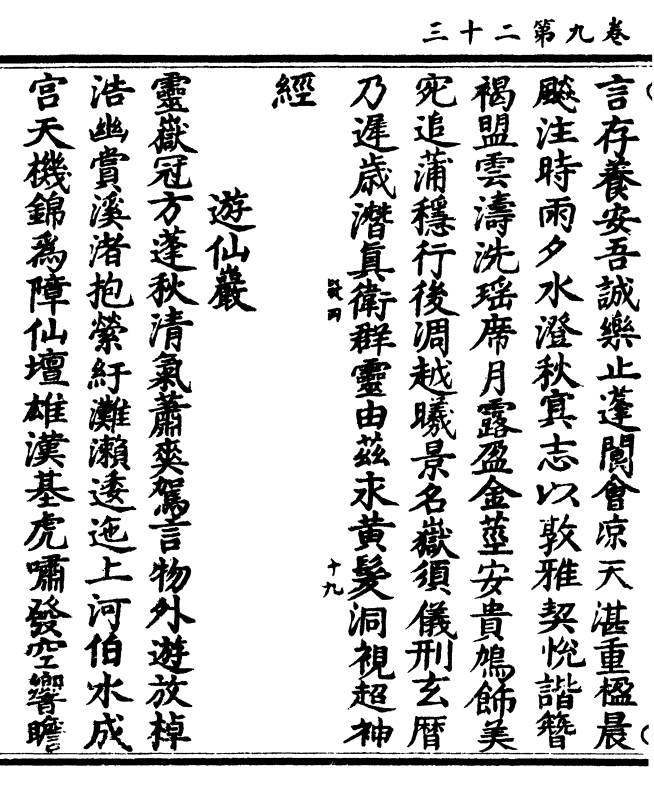 卷九第二十三
言存養安吾誠樂止蓬閬會凉天湛重楹晨
飈注時雨夕水澄秋寘志以敦雅契悅諧簪
褐盟雲濤洗瑶席月露盈金莖安貴鳩飾美
宛追蒲穩行後凋越曦景名嶽須儀刑玄曆
乃遲歳潛眞衛群靈由茲求黃髮洞視超神
十九
經
遊仙巖
靈嶽冠方蓬秋清氣蕭爽駕言物外遊放棹
浩幽賞溪渚抱縈紆灘瀨逶迤上河伯水成
宫天機錦爲障仙壇雄漢基虎嘯發空響瞻